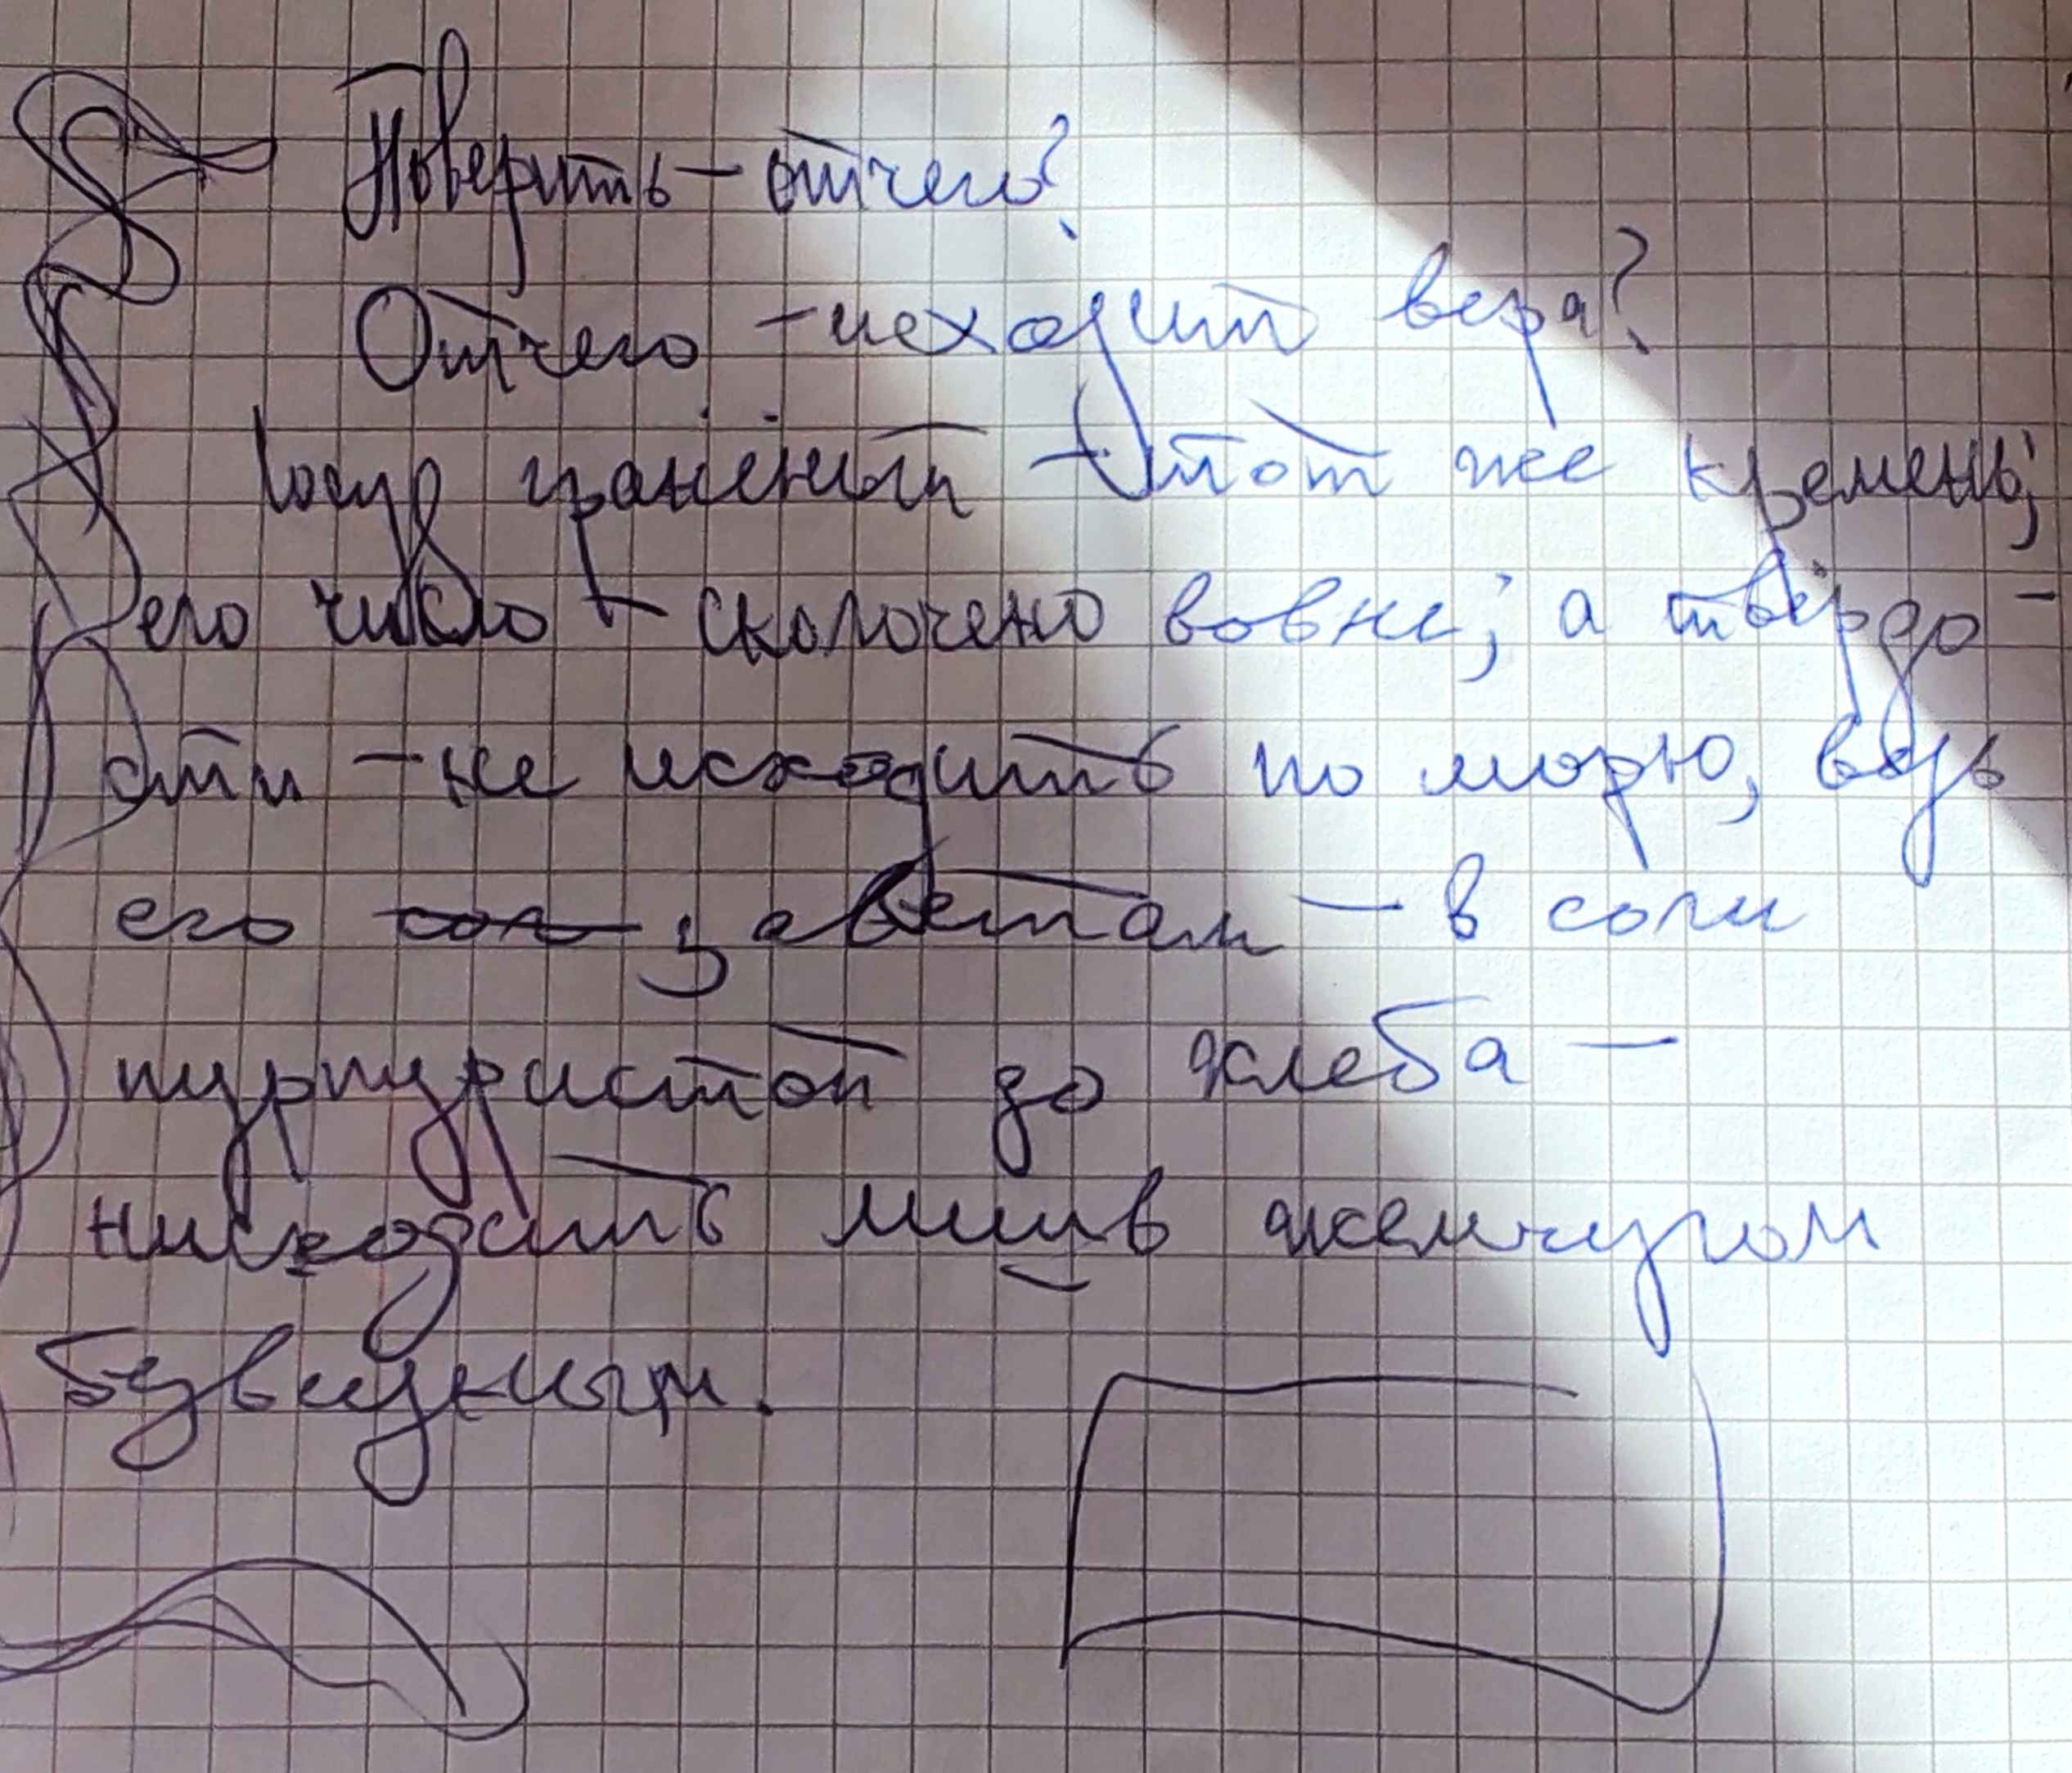 Поверить – отчего?
Отчего – исходит вера?
гранёный – тот же кремень;
его число – сколочено вовне; а твёрдо-
сти – не исходить по морю, ведь
его заветам – в соли
пурпуристой до хлеба –
нисходить лишь жемчугом
безвидным.